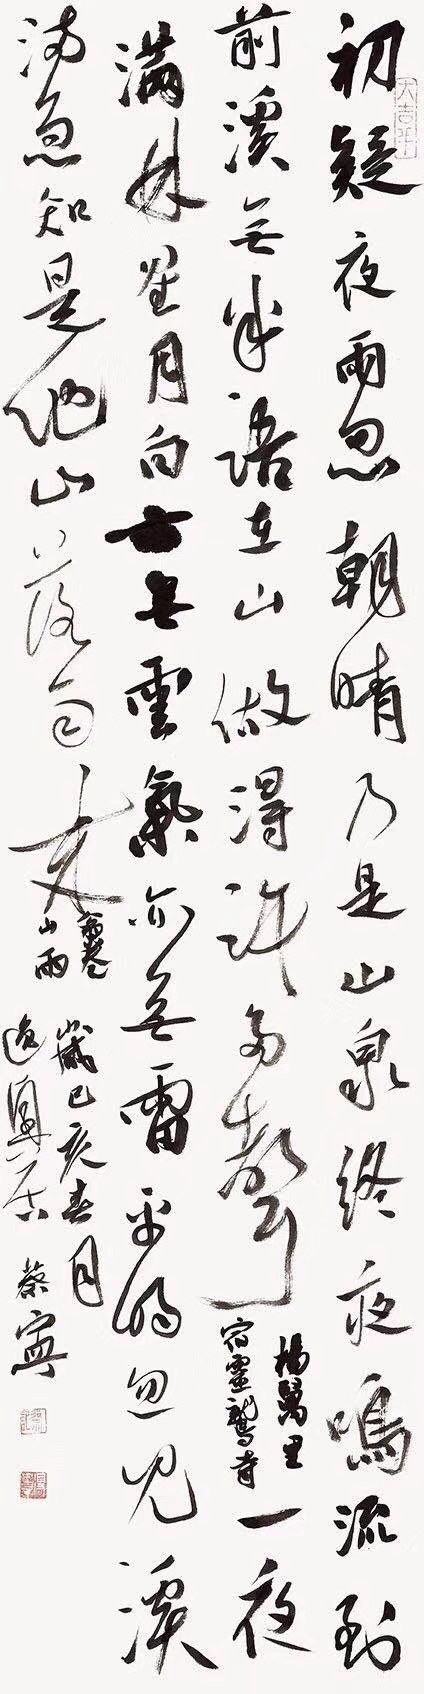 大吉羊
初疑夜雨忽朝晴乃是山泉終夜鳴流到
前溪無半語在山做得許多聲
楊萬里
宿靈鷲寺
一夜
滿林星月白亦無雲氣亦無雷平明忽見溪
流急知是他山落雨来
翁卷
山雨
歲己亥春月
蔡寧